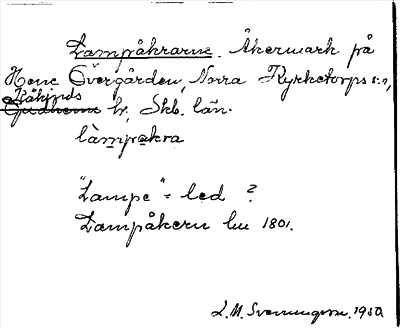 Lampåkrarne. Åkermark på
Hene Övergården, Norra Kyrketorps s:n,
Kåkinds
Gudhems hr, Skb. län.
làmpakra
"Lampe" = led ?
Lampåkern lu 1801.
L.M. Svenungsson. 1930